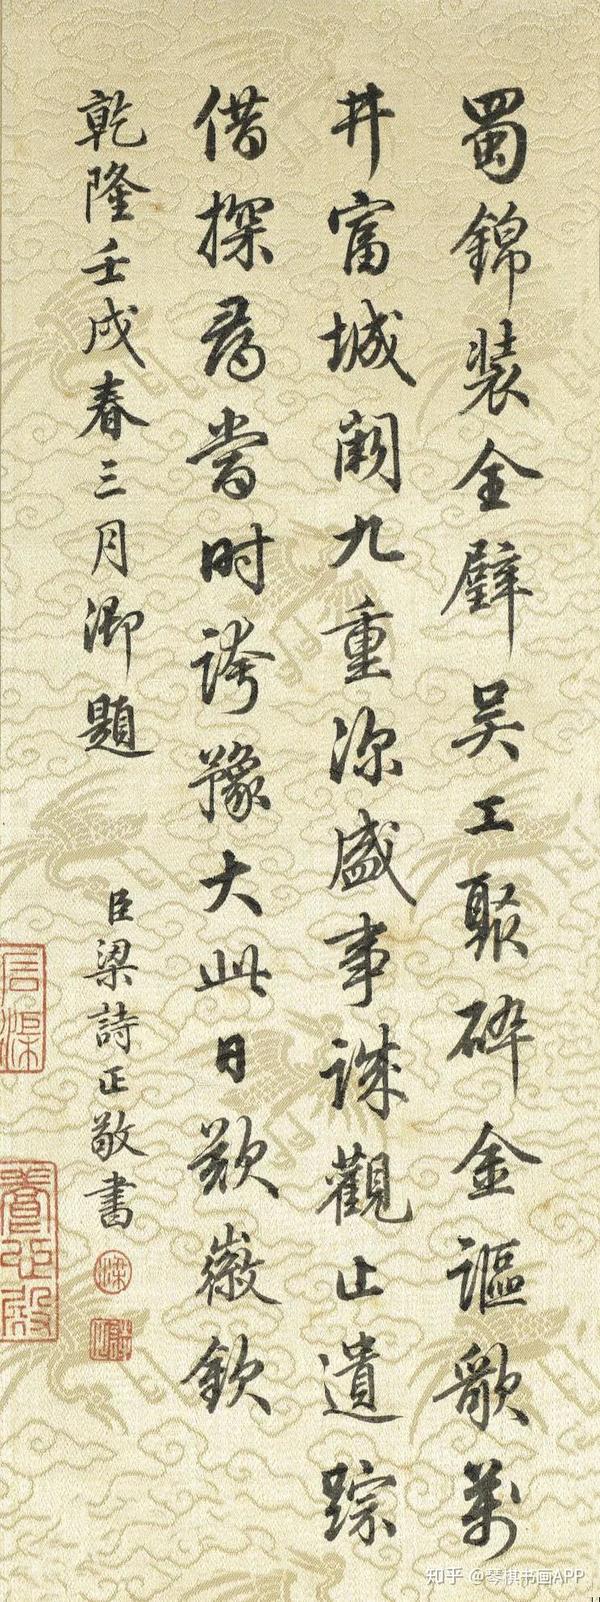 蜀錦装全璧吴工聚碎金謳歌萬
井富城闕九重深盛事誠觀止遺踪
借探尋當時誇豫大此日歎徽欽
乾隆壬戌春三月御題
臣梁詩正敬書
養心殿
知乎 @琴棋书画APP